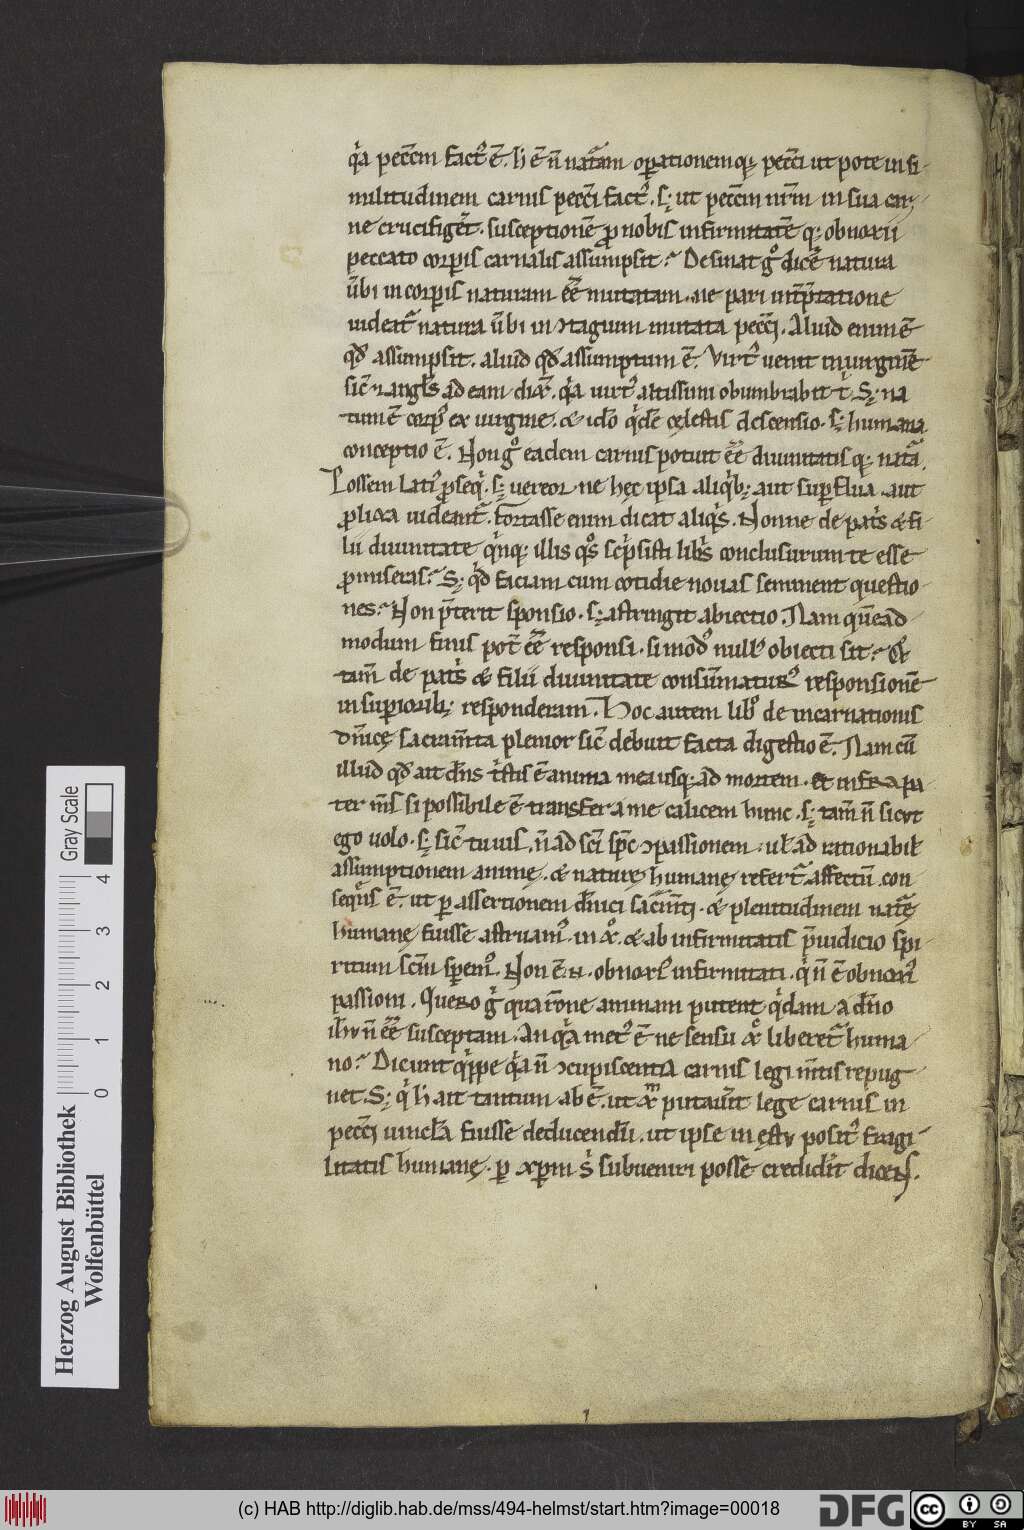 q̓a peccm̄ fact᷒ ē. h̄ ē n̄ natā̓m oꝑationemq; pecci ut pote in si-
militudinem carnis pecci fact᷒. s; ut peccm̄ nr̄m in sua car-
ne crucifiger̄. susceptionē ꝓ nobis infirmitatē q; obnoxii
peccato corꝑis carnalis assumpsit. Desinat g° dicē natura
ūbi in corꝑis naturam eē mutatam. ne pari int̄p̄tatione
uideat᷑ natura ūbi in ꝯtagium mutata pecci. Aliud enim ē
qd̄ assumpsit. aliud qd̄ assumptum ē. Virt᷒ uenit in uirginē
sic̄ ⁊ angl̄s ad eam dix̄. q̓a uirt᷒ altissimi obumbrabit t̓. S; na
tum ē corp᷒ ex uirgine. & ido̓ q̓dē cęlestis descensio. s; humana
conceptio ē. Non g° eadem carnis potuit eē̄ diuinitatis q; natā̓.
Possem lati᷒ ꝓseq̓. s; uereor. ne hęc ipsa aliq̓b; aut suꝑflua. aut
ꝓlixa uideant᷑. Fortasse enim dicat aliq̓s. Nonne de pat̓s & fi-
lii diuinitate q̓nq; illis q°s sc̄psisti lib̓s conclusurum te esse
ꝓmiseras. S; q̓d faciam cum cotidie nouas seminent questio-
nes. Non p̄terit sponsio. s; astringit abiectio. Nam quēad-
modum finis pot̄ eē̄ responsi. si mod᷒ null᷒ obiecti sit. Et
tam̄ de pat̓s & filii diuinitate consūmatur᷒ responsionē
in suꝑiorib; responderam. Hoc autem lib° de incarnationis
dn̄icę sacram̄ta plenior sic̄ debuit facta digestio ē. Nam cū
illud qd̄ ait dn̄s t̓stis ē anima mea usq; ad mortem. et infra pa-
ter m̄s si possibile ē transfer a me calicem hunc. s; tam̄ n̄ sicut
ego uolo. s; sic̄ tu uis. n̄ ad sc̄i sp̄c ꝯpassionem. ul̓ ad rationabil̓
assumptionem animę. & naturę humanę refert᷑ affectū con-
seq̓ns ē. ut ꝑ assertionem dn̄ici sac̄m̄ti. & plenitudinem natā̓ę
humanę fuisse astruam᷒. in x°. & ab infirmitatis p̄iudicio spi-
ritum sc̄m sꝑem᷒. Non ē .n. obnox᷒ infirmitati. q̓ n̄ ē obnoxi᷒
passioni. Quęro g̓ qua rōne animam putent q̓dam a dn̄o
ih̄u n̄ eē̄ susceptam. An q̓a met᷒ ē ne sensu x° liberet᷑ huma-
no. Dicunt q̓ppe q̓a n̄ ꝯcupiscentia carnis legi m̄tis repug-
net. S; q̓ h̄ ait tantum ab ē. ut xp̄m putau̓it lege carnis in
pecci uincl̓a fuisse deducendū. ut ipse in ęstu posit᷒ fragi-
litatis humanę. ꝑ xp̄m s̓ subueniri posse credid̓it dicens.
Herzog August Bibliothek
Wolfenbüttel
Gray Scale
0 1 2 3 4
(c) HAB http://diglib.hab.de/mss/494-helmst/start.htm?image=00018
DFG
cc BY SA